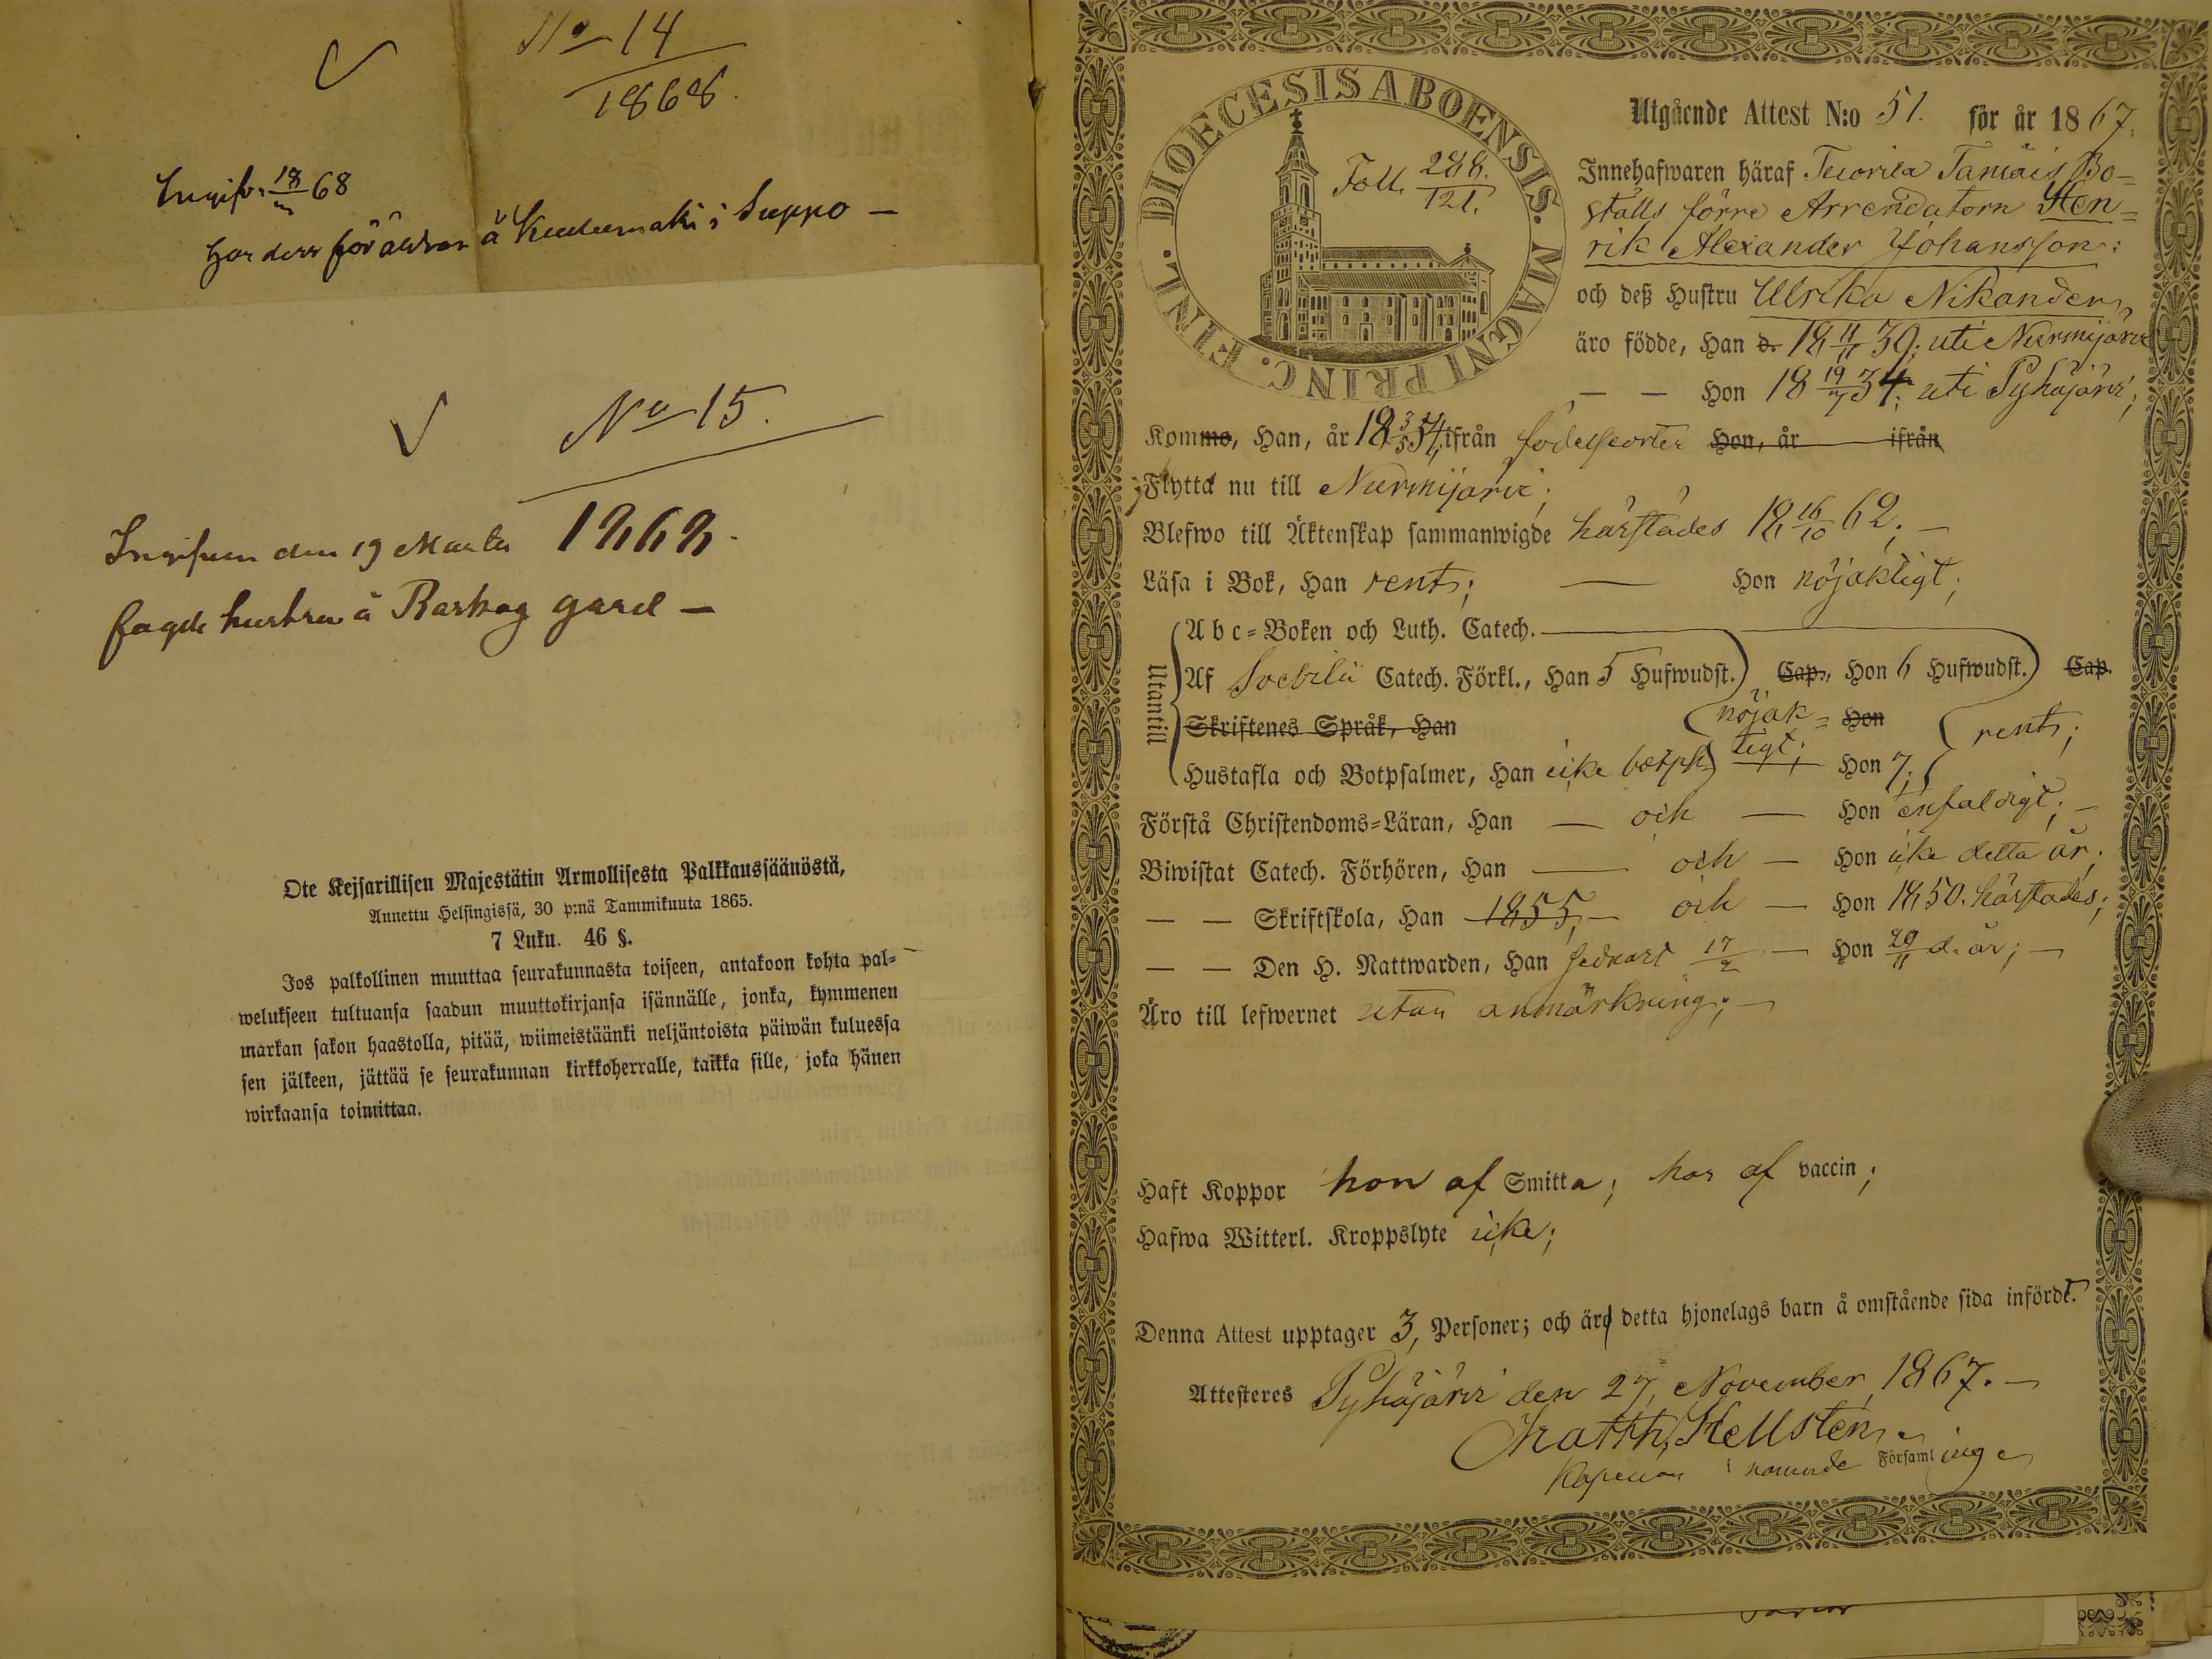 No 14
1868.
Ingifv. 18/3 68
har dess föräldrar å Kuulumäki i Suppo —
No 15.
1868.
Ingifven den 19 Martii
sagde hustru å Raskog gård —
Ote Kejsarillisen Majestätin Armollisesta Palkkaussäänöstä,
Annettu Helsingissä, 30 p:nä Tammikuuta 1865.
7 Luku. 46 §.
Jos palkollinen muuttaa seurakunnasta toiseen, antakoon kohta pal-
welukseen tultuansa saadun muuttokirjansa isännälle, jonka, kymmenen
markan sakon haastolla, pitää, wiimeistäänki neljäntoista päiwän kuluessa
sen jälkeen, jättää se seurakunnan kirkkoherralle, taikka sille, joka hänen
wirkaansa toimittaa.
DIOECESIS ABOENSIS. MAGNI PRINC. FINL.
Foll. 288./121.
Utgående Attest N:o 51. för år 1867.
Innehafwaren häraf Bo-
ställs förre Arrendatorn Hen-
rik Alexander Johansson:
och deß Hustru Ulrika Nikander,
äro födde, Han d. 18 11/11 39; uti Nurmijärvi
— — Hon 18 19/7 34; uti Pyhäjärvi;
Kommo, Han, år 18 3/5 54, ifrån födelseorten Hon, år ifrån
Flytta nu till Nurmijärvi;
Blefwo till Äktenskap sammanwigde härstädes 18 16/10 62; —
Läsa i Bok, Han rent; — Hon nöjaktigt;
Utantill
Abc-Boken och Luth. Catech.
Af Svebilii Catech. Förkl., Han 5 Hufwudst. Cap., Hon 6 Hufwudst. Cap.
Skriftenes Språk, Han nöjak- Hon rent;
Hustafla och Botpsalmer, Han icke botps. tigt; Hon 7;
Förstå Christendoms-Läran, Han — och — Hon enfaldigt; —
Biwistat Catech. Förhören, Han — och — Hon icke detta år;
— — Skriftskola, Han 1855, — och — Hon 1850. härstädes;
— — Den H. Nattwarden, Han sednast 17/2 — Hon 20/11 d. år; —
Äro till lefwernet utan anmärkning; —
Haft Koppor hon af Smitta; han af vaccin;
Hafwa Witterl. Kroppslyte icke;
Denna Attest upptager 3, Personer; och äro detta hjonelags barn å omstående sida infördt.
Attesteres Pyhäjärvi den 27, November, 1867. —
Matth. Hellsten,
Kapellan i nämnde Församling